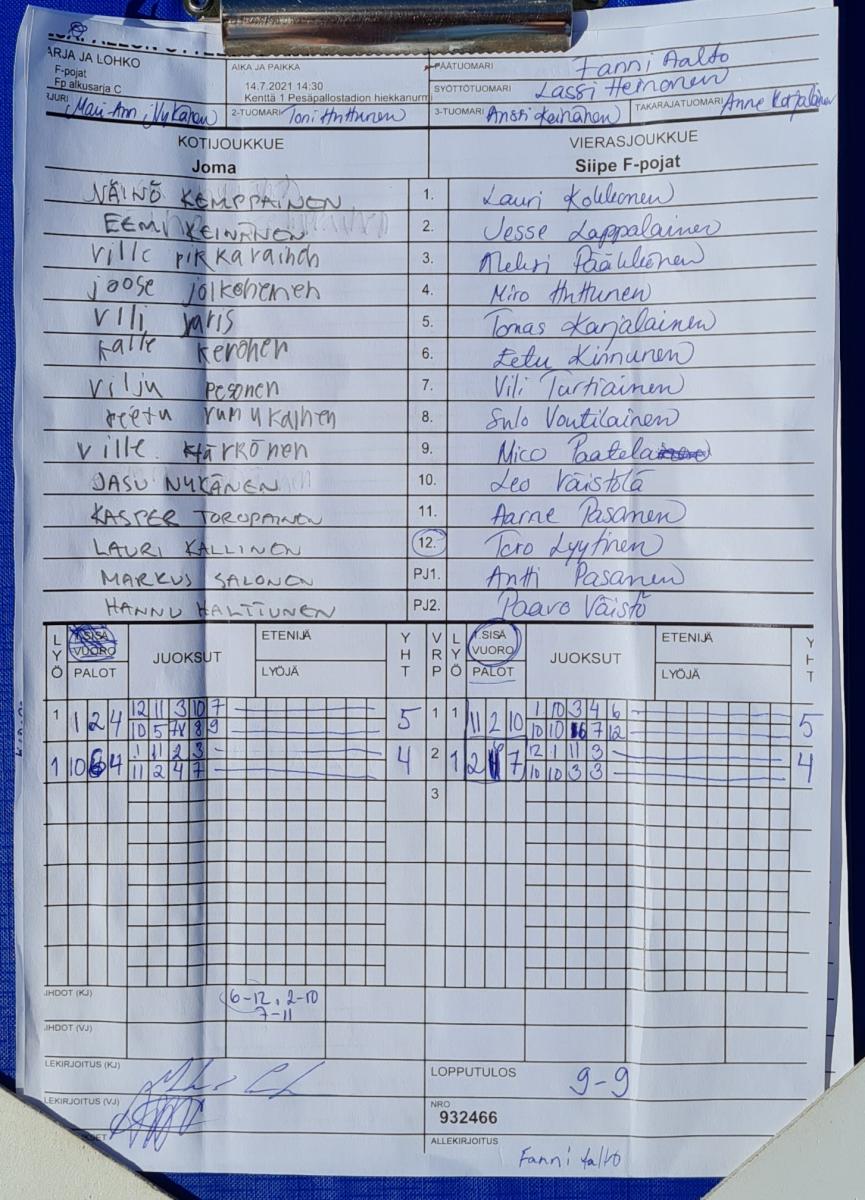 ARJA JA LOHKO
F-pojat
Fp alkusarja C
AIKA JA PAIKKA
14.7.2021 14:30
Kenttä 1 Pesäpallostadion hiekkanurmi
PÄÄTUOMARI Fanni Aalto
SYÖTTÖTUOMARI Lassi Heinonen
Mari-Ann Nykänen 2-TUOMARI Toni Huttunen 3-TUOMARI Anssi Keinänen TAKARAJATUOMARI Anne Karjalainen
KOTIJOUKKUE VIERASJOUKKUE
Joma Siipe F-pojat
VÄINÖ KEMPPAINEN 1. Lauri Kokkonen
EEMI KEINÄNEN 2. Jesse Lappalainen
ville pikkarainen 3. Aleksi Pääkkönen
joose jolkohenen 4. Miro Huttunen
vili jaris 5. Tomas Karjalainen
kalle keronen 6. Eetu Kinnunen
vilju pesonen 7. Vili Tartiainen
eetu 8. Sulo Voutilainen
ville Kärkönen 9. Mico Paatela
JASU NYKÄNEN 10. Leo Väistölä
KASPER TOROPAINEN 11. Aarne Pasanen
LAURI KALLINEN 12. Tero Lyytinen
MARKUS SALONEN PJ1. Antti Pasanen
HANNU HALTTUNEN PJ2. Paavo Väistö
LYÖ 1.SISÄ VUORO PALOT JUOKSUT ETENIJÄ LYÖJÄ YHT VRP LYÖ 1.SISÄ VUORO PALOT JUOKSUT ETENIJÄ LYÖJÄ YHT
1 1 2 4 12 11 3 10 7 5 1 1 11 2 10 1 10 3 4 6 5
10 5 8 9 10 10 7 12
1 10 6 4 1 11 2 3 4 2 1 2 7 12 1 11 3 4
11 2 4 7 10 10 3 3
3
(KJ) 6-12, 2-10
7-11
(VJ)
LEKIRJOITUS (KJ) LOPPUTULOS 9-9
LEKIRJOITUS (VJ) NRO
932466
ALLEKIRJOITUS
Fanni Aalto